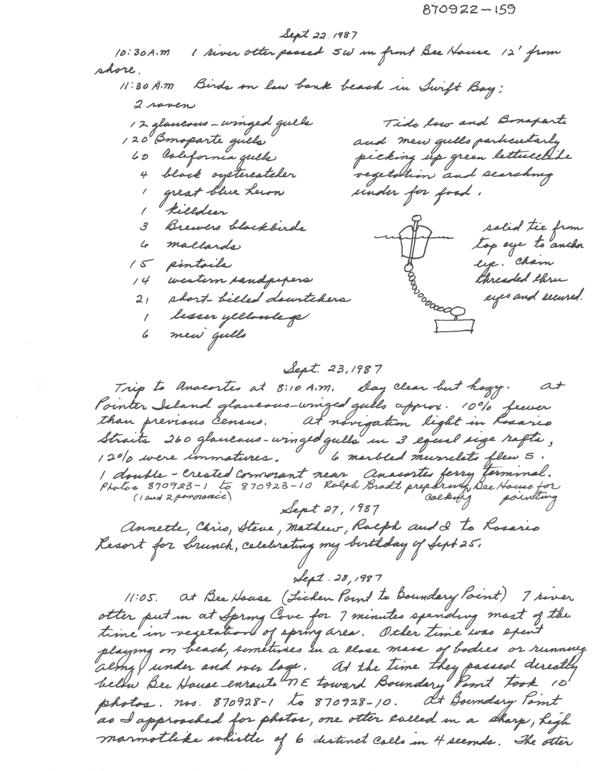 870922-159
Sept 22, 1987
10:30 A.M 1 river otter passed SW in front Bee House 12' from
shore.
11:30 A.M Birds on low bank beach in Swift Bay:
2 raven
12 glaucous-winged gulls
120 Bonaparte gulls
60 California gulls
4 black oystercatcher
1 great blue heron
1 killdeer
3 Brewers blackbirds
6 mallards
15 pintails
14 western sandpipers
21 short-billed dowitchers
1 lesser yellowlegs
6 mew gulls
Tide low and Bonaparte
and mew gulls particularly
picking up green lettucelike
vegetation and searching
under for food.
solid tie from
top eye to anchor
eye. Chain
threaded thru
eyes and secured.
Sept. 23, 1987
Trip to Anacortes at 8:10 A.M. Day clear but hazy. At
Pointer Island glaucous-winged gulls approx. 10% fewer
than previous census. At navigation light in Rosario
Straits 260 glaucous-winged gulls in 3 equal size rafts,
12% were immatures. 6 marbled murrelets flew S.
1 double-crested cormorant near Anacortes ferry terminal.
Photos 870923-1 to 870923-10 Ralph Bradt preparing Bee House for
(1 and 2 panoramic) caulking painting
Sept 27, 1987
Annette, Chris, Steve, Mathew, Ralph and I to Rosario
Resort for brunch, celebrating my birthday of Sept 25.
Sept. 28, 1987
11:05. At Bee House (Lichen Point to Boundary Point) 7 river
otter put in at Spring Cove for 7 minutes spending most of the
time in vegetation of spring area. Other time was spent
playing on beach, sometimes in a close mass of bodies or running
along, under and over logs. At the time they passed directly
below Bee House enroute NE toward Boundary Point took 10
photos. nos. 870928-1 to 870928-10. At Boundary Point
as I approached for photos, one otter called in a sharp, high
marmotlike whistle of 6 distinct calls in 4 seconds. The otter